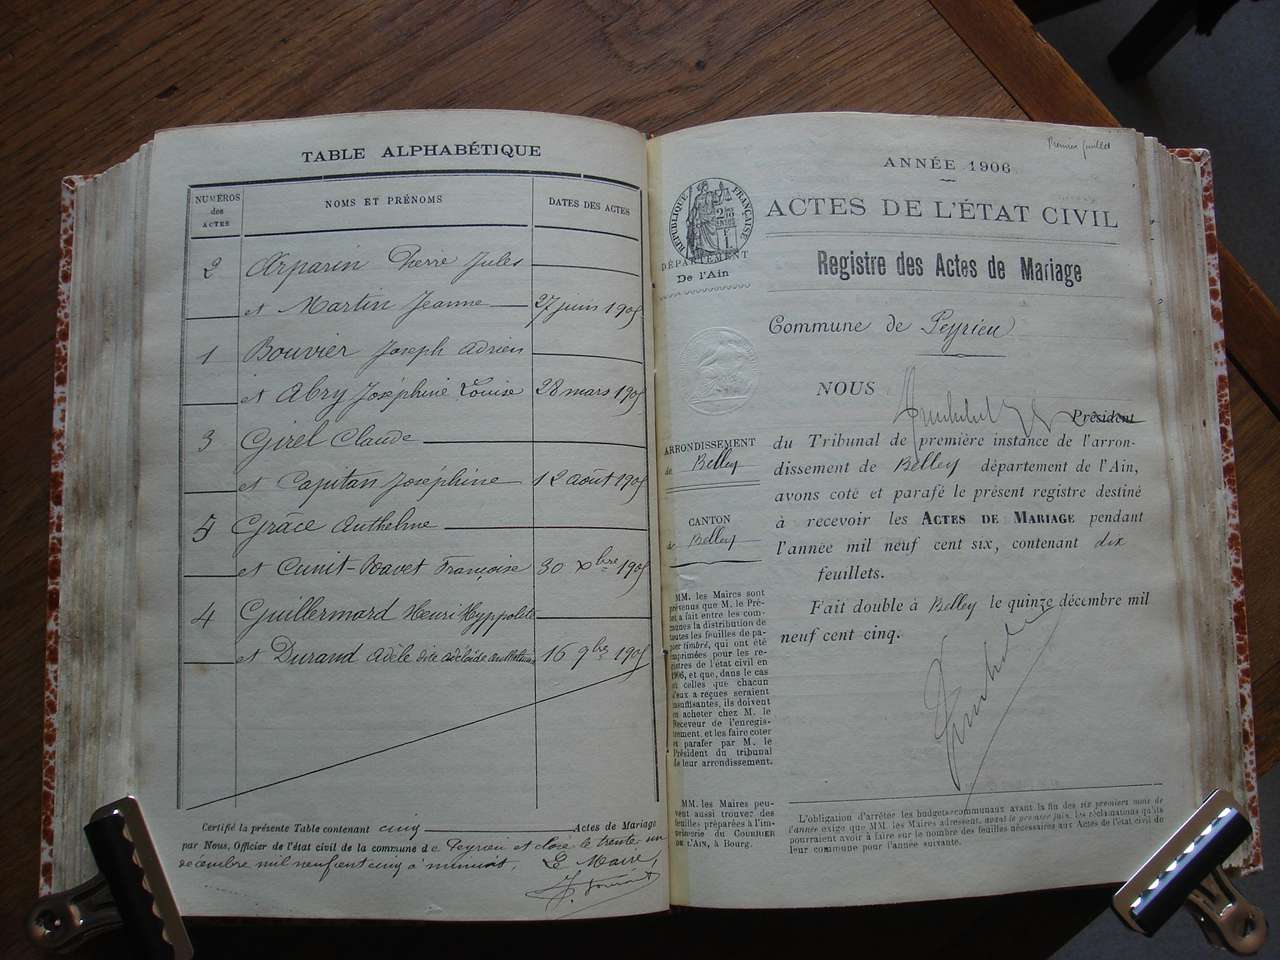 TABLE ALPHABÉTIQUE
NUMÉROS des ACTES
NOMS ET PRÉNOMS
DATES DES ACTES
2 Arparin Pierre Jules
et Martin Jeanne 27 juin 1905
1 Bouvier Joseph Adrien
et Abry Joséphine Louise 28 mars 1905
3 Girel Claude
et Capitan Joséphine 12 août 1905
5 Grâce Anthelme
et Cunit-Ravet Françoise 30 xbre 1905
4 Guillermard Henri Hyppolite
et Durand Adèle dite Adélaïde 16 9bre 1905
Certifié la présente Table contenant cinq Actes de Mariage
par Nous, Officier de l'état civil de la commune de Peyrieu et clos le trente un
décembre mil neuf cent cinq à minuit, Le Maire,
Premier feuillet
ANNÉE 1906
RÉPUBLIQUE FRANÇAISE
DÉPARTEMENT
De l'Ain
ACTES DE L'ÉTAT CIVIL
Registre des Actes de Mariage
Commune de Peyrieu
NOUS
Président
ARRONDISSEMENT
de Belley
CANTON
de Belley
du Tribunal de première instance de l'arron-
dissement de Belley département de l'Ain,
avons coté et parafé le présent registre destiné
à recevoir les ACTES DE MARIAGE pendant
l'année mil neuf cent six, contenant dix
feuillets.
Fait double à Belley le quinze décembre mil
neuf cent cinq.
MM. les Maires sont
prévenus que M. le Pré-
et a fait entre les com-
munes la distribution de
toutes les feuilles de pa-
pier timbré, qui ont été
imprimées pour les re-
gistres de l'état civil en
1906, et que, dans le cas
où celles que chacun
d'eux a reçues seraient
insuffisantes, ils doivent
en acheter chez M. le
Receveur de l'enregis-
trement, et les faire coter
et parafer par M. le
Président du tribunal
de leur arrondissement.
MM. les Maires peu-
vent aussi trouver des
feuilles préparées à l'im-
primerie du COURRIER
DE L'AIN, à Bourg.
L'obligation d'arrêter les budgets communaux avant la fin des six premiers mois de
l'année exige que MM. les Maires adressent, avant le premier juin, les réclamations qu'ils
pourraient avoir à faire sur le nombre des feuilles nécessaires aux Actes de l'état civil de
leur commune pour l'année suivante.